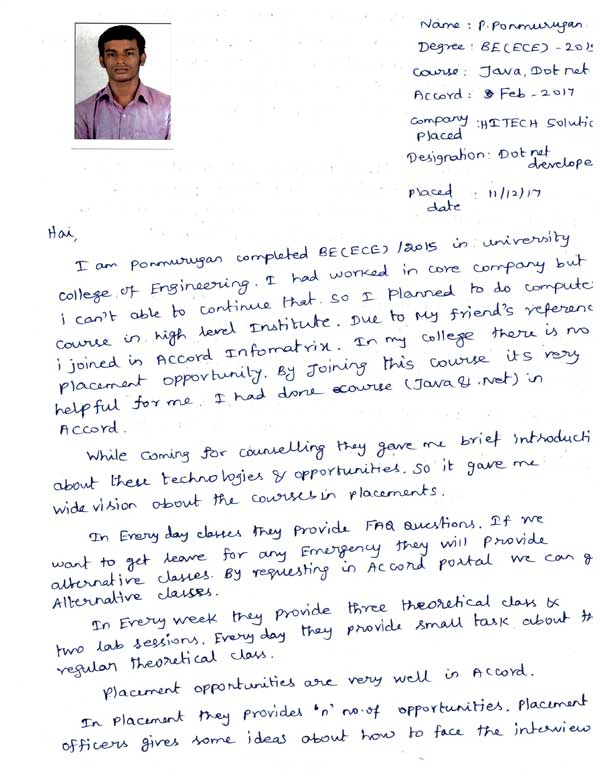 Name : P. Ponmurugan
Degree : BE(ECE) - 201
Course : Java, Dot net
Accord : Feb - 2017
Company Placed : HITECH Soluti
Designation : Dot net develope
Placed date : 11/12/17
Hai,
I am Ponmurugan completed BE(ECE) /2015 in university
college of Engineering. I had worked in core company but
i can't able to continue that. So I Planned to do compute
course in high level Institute. Due to My friend's referenc
i joined in Accord Infomatrix. In my college there is no
placement opportunity. By Joining this course its very
helpful for me. I had done course (Java & .Net) in
Accord.
While coming for counselling they gave me brief introducti
about these technologies & opportunities. So it gave me
wide vision about the courses in placements.
In Every day classes they Provide FAQ Questions. If we
want to get leave for any Emergency they will provide
alternative classes. By requesting in Accord portal we can g
Alternative classes.
In Every week they Provide three theoretical class &
two lab sessions. Every day they provide small task about th
regular theoretical class.
Placement opportunities are very well in Accord.
In Placement they provides 'n' no.of opportunities. Placement
officers gives some ideas about how to face the interview